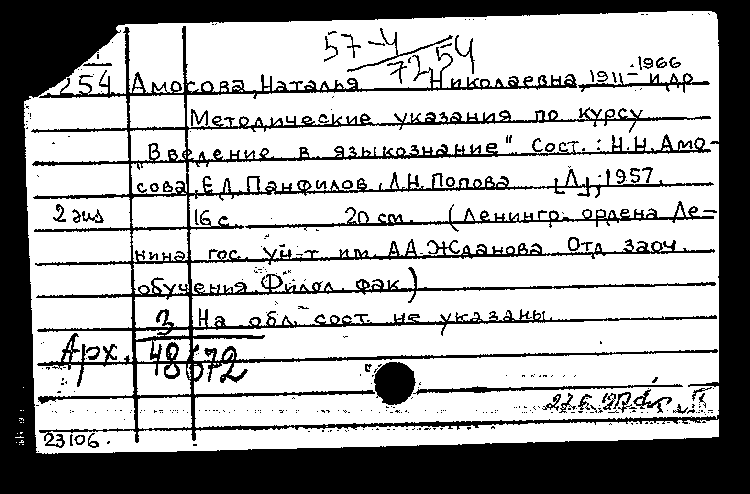 57-4
7254
254 Амосова, Наталья Николаевна, 1911-1966 и др
Методические указания по курсу
"Введение в языкознание" Сост.: Н.Н. Амо-
сова, Е.Д. Панфилов, Л.Н. Попова [Л.], 1957.
2 экз 16 с. 20 см. (Ленингр. ордена Ле-
нина гос. ун-т им. А.А. Жданова Отд заоч.
обучения. Филол. фак.)
На обл. сост. не указаны.
Арх. 3
48672
23106.